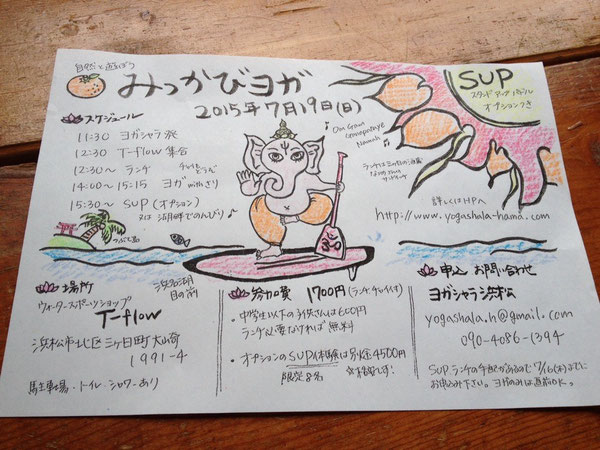 自然と遊ぼう
みっかびヨガ
2015年7月19日(日)
SUP
スタンドアップパドル
オプションつき
スケジュール
11:30 ヨガシャラ発
12:30 T-flow 集合
12:30〜 ランチ
14:00〜15:15 ヨガ with きり
15:30〜 SUP (オプション)
又は 湖畔でのんびり♪
Om Gam
Ganapataye
Namah
ランチは三ヶ日の酒蔵
詳しくはHPへ
http://www.yogashala-hama.com
つぶて島
場所
浜名湖
目の前
ウォータースポーツショップ
T-flow
浜松市北区三ヶ日町大崎
1991-4
馬主車場・トイレ・シャワーあり
参加費 1700円(ランチ、チャイ付)
・中学生以下の子供さんは600円
ランチ必要なければ 無料
・オプションのSUP体験は別途4500円
限定8名
申込 お問い合わせ
ヨガシャラ浜松
yogashala.h@gmail.com
090-4086-1394
SUP、ランチの手配があるので 7/16(木)までに
お申込み下さい。ヨガのみは直前OK。